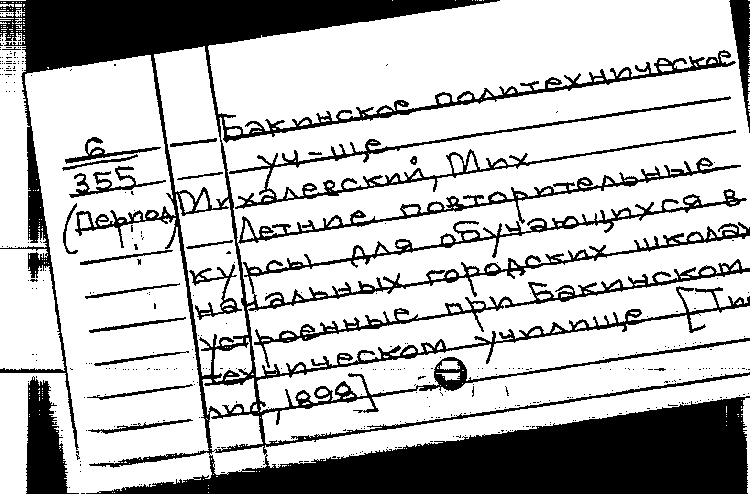 Бакинское политехническое
уч-ще.
6
355
(Период)
Михалевский, Мих
Летние повторительные
курсы для обучающихся в
начальных городских школах
устроенные при Бакинском
техническом училище [Ти
лис, 1898]